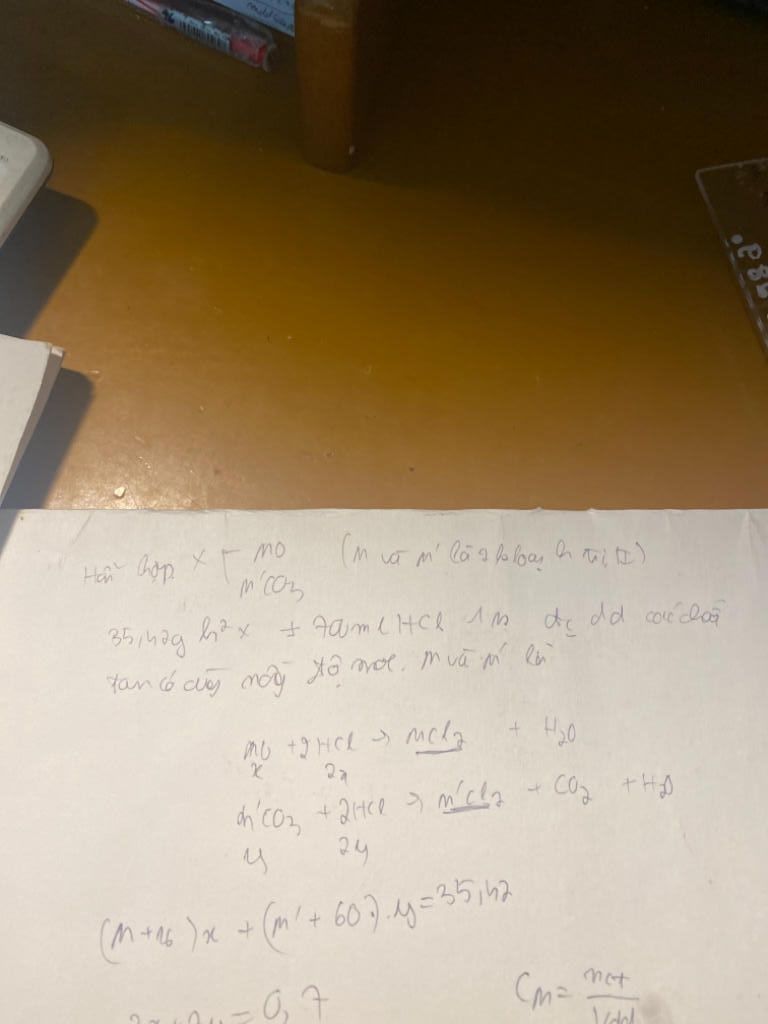 Hỗn hợp X [ MO (M và M' là 2 k loại h trị II)
M'CO3
35,42g h² X + 700ml HCl 1M đc dd các chất
tan có cùng nồng độ mol. M và M' là
MO + 2HCl → MCl2 + H2O
x 2x
M'CO3 + 2HCl → M'Cl2 + CO2 + H2O
y 2y
(M+16)x + (M' + 60).y = 35,42
2x+2y = 0,7 CM = nct / Vdd